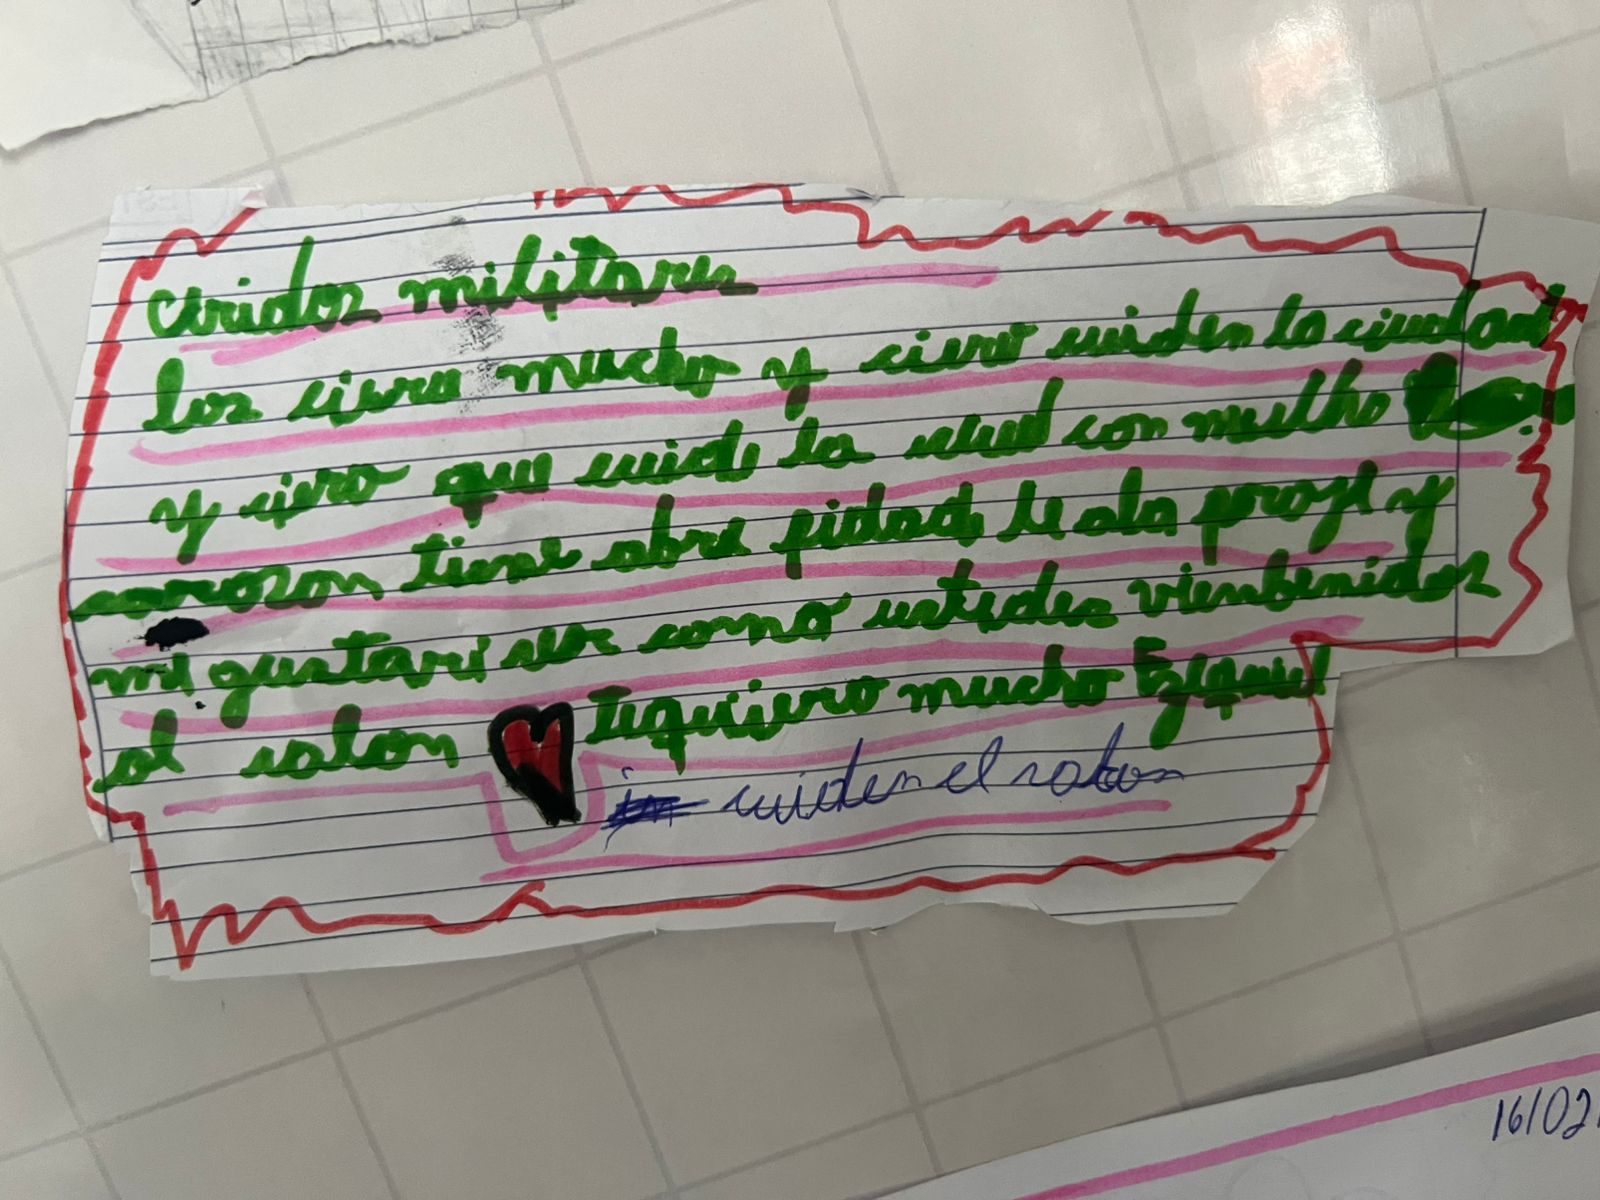 ciridos militares
los ciero mucho y ciero cuiden la ciudad
y ciero que cuide la salud con mulho
corozon tiene abre fidad le ala proge y
me gustari ser como ustedes vienbenidos
al salon tequiero mucho Ezequiel
cuiden el salon
16/02